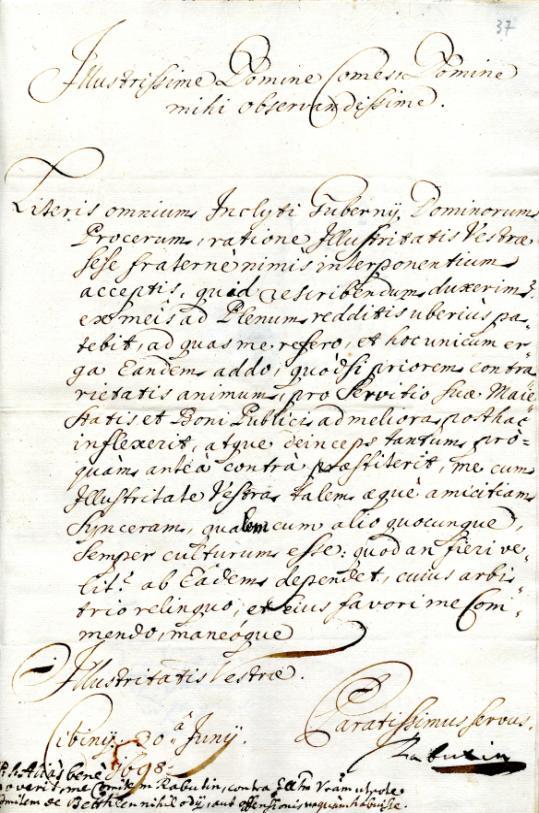 37
Illustrissime Domine Comes, Domine
mihi observandissime.
Literis omnium Inclyti Gubernij Dominorum
Procerum, ratione Illustritatis Vestræ
sese fraternè nimis interponentium
acceptis, quid rescribendum duxerim,
ex meis ad Plenum redditis uberius pa-
tebit, ad quas me refero, et hoc unicum er-
ga Eandem addo, quòdsi priorem contra
rietatis animum, pro Servitio suæ Maie
statis et Boni Publici ad meliora posthac
inflexerit, atque deinceps tantum pro-
quàm anteà contrà præstiterit, me cum
Illustritate Vestra talem æquè amicitiam
synceram, qualem cum alio quocunque,
semper culturum esse: quod an fieri ve-
lit ab Eadem dependet, cuius arbi-
trio relinquo, et eius favori me Com-
mendo, maneóque
Illustritatis Vestræ.
Cibinij 20ª Junij.
Paratissimus servus.
1698.
Rabutin
Alias bene
me Comitem Rabutin, contra
Comitem de Bethlen nihil odij, aut offensionis unquam habuisse.